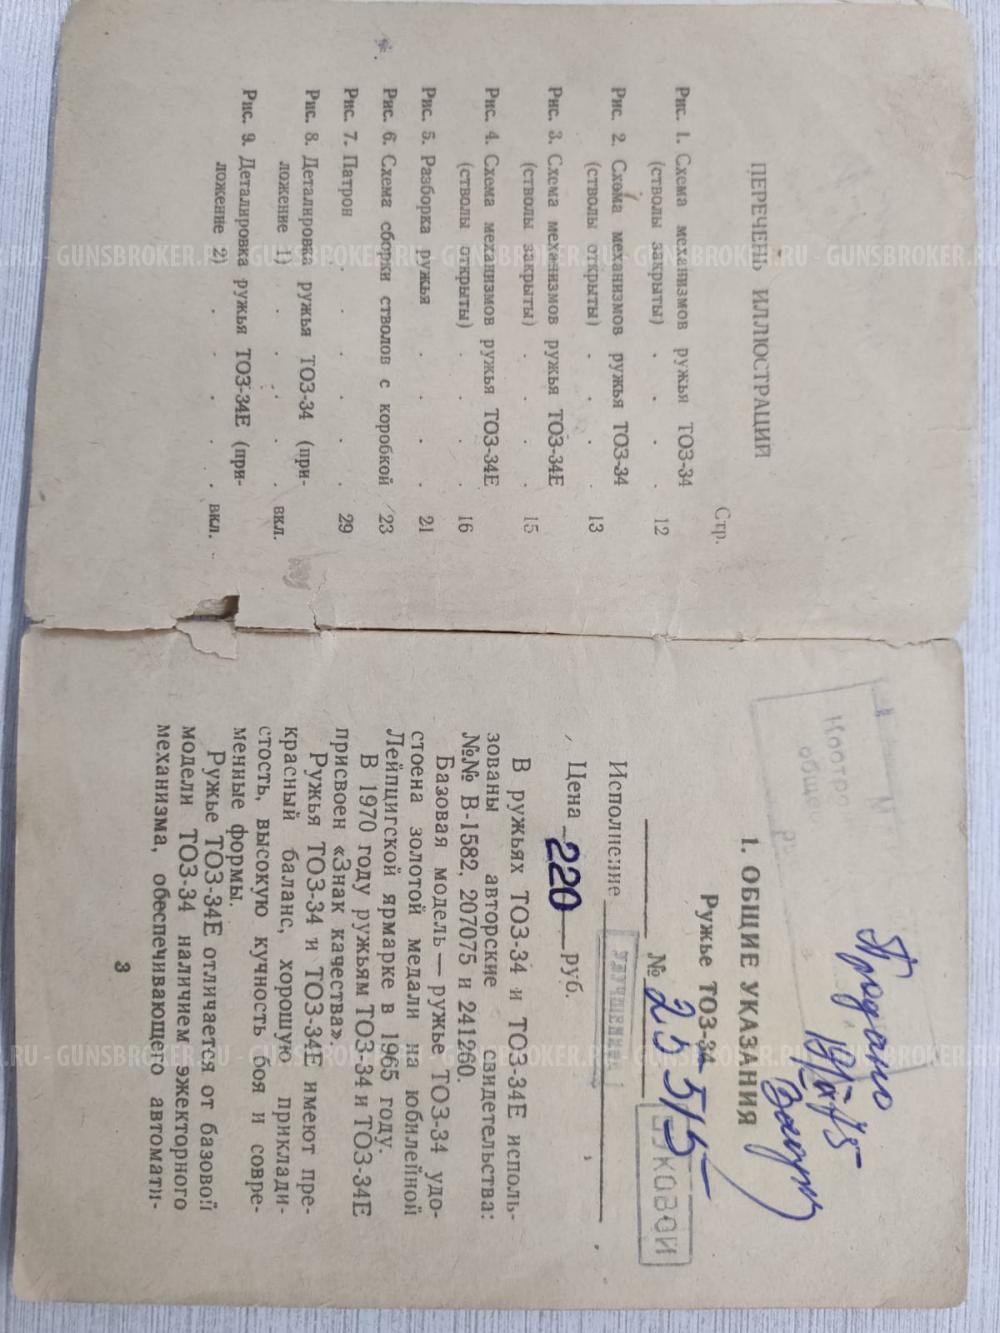 ПЕРЕЧЕНЬ ИЛЛЮСТРАЦИЙ
Стр.
Рис. 1. Схема механизмов ружья ТОЗ-34
(стволы закрыты) . . . . 12
Рис. 2. Схема механизмов ружья ТОЗ-34
(стволы открыты) . . . . 13
Рис. 3. Схема механизмов ружья ТОЗ-34Е
(стволы закрыты) . . . . 15
Рис. 4. Схема механизмов ружья ТОЗ-34Е
(стволы открыты) . . . . 16
Рис. 5. Разборка ружья . . . . 21
Рис. 6. Схема сборки стволов с коробкой 23
Рис. 7. Патрон . . . . . 29
Рис. 8. Деталировка ружья ТОЗ-34 (при-
ложение 1) . . . . . вкл.
Рис. 9. Деталировка ружья ТОЗ-34Е (при-
ложение 2) . . . . . вкл.
Продано
I. ОБЩИЕ УКАЗАНИЯ
Ружье ТОЗ-34
№ 25515
Исполнение
Цена 220 руб.
В ружьях ТОЗ-34 и ТОЗ-34Е исполь-
зованы авторские свидетельства:
№№ В-1582, 207075 и 241260.
Базовая модель — ружье ТОЗ-34 удо-
стоена золотой медали на юбилейной
Лейпцигской ярмарке в 1965 году.
В 1970 году ружьям ТОЗ-34 и ТОЗ-34Е
присвоен «Знак качества».
Ружья ТОЗ-34 и ТОЗ-34Е имеют пре-
красный баланс, хорошую приклади-
стость, высокую кучность боя и совре-
менные формы.
Ружье ТОЗ-34Е отличается от базовой
модели ТОЗ-34 наличием эжекторного
механизма, обеспечивающего автомати-
3
GUNSBROKER.RU - GUNSBROKER.RU - GUNSBROKER.RU
GUNSBROKER.RU - GUNSBROKER.RU - GUNSBROKER.RU